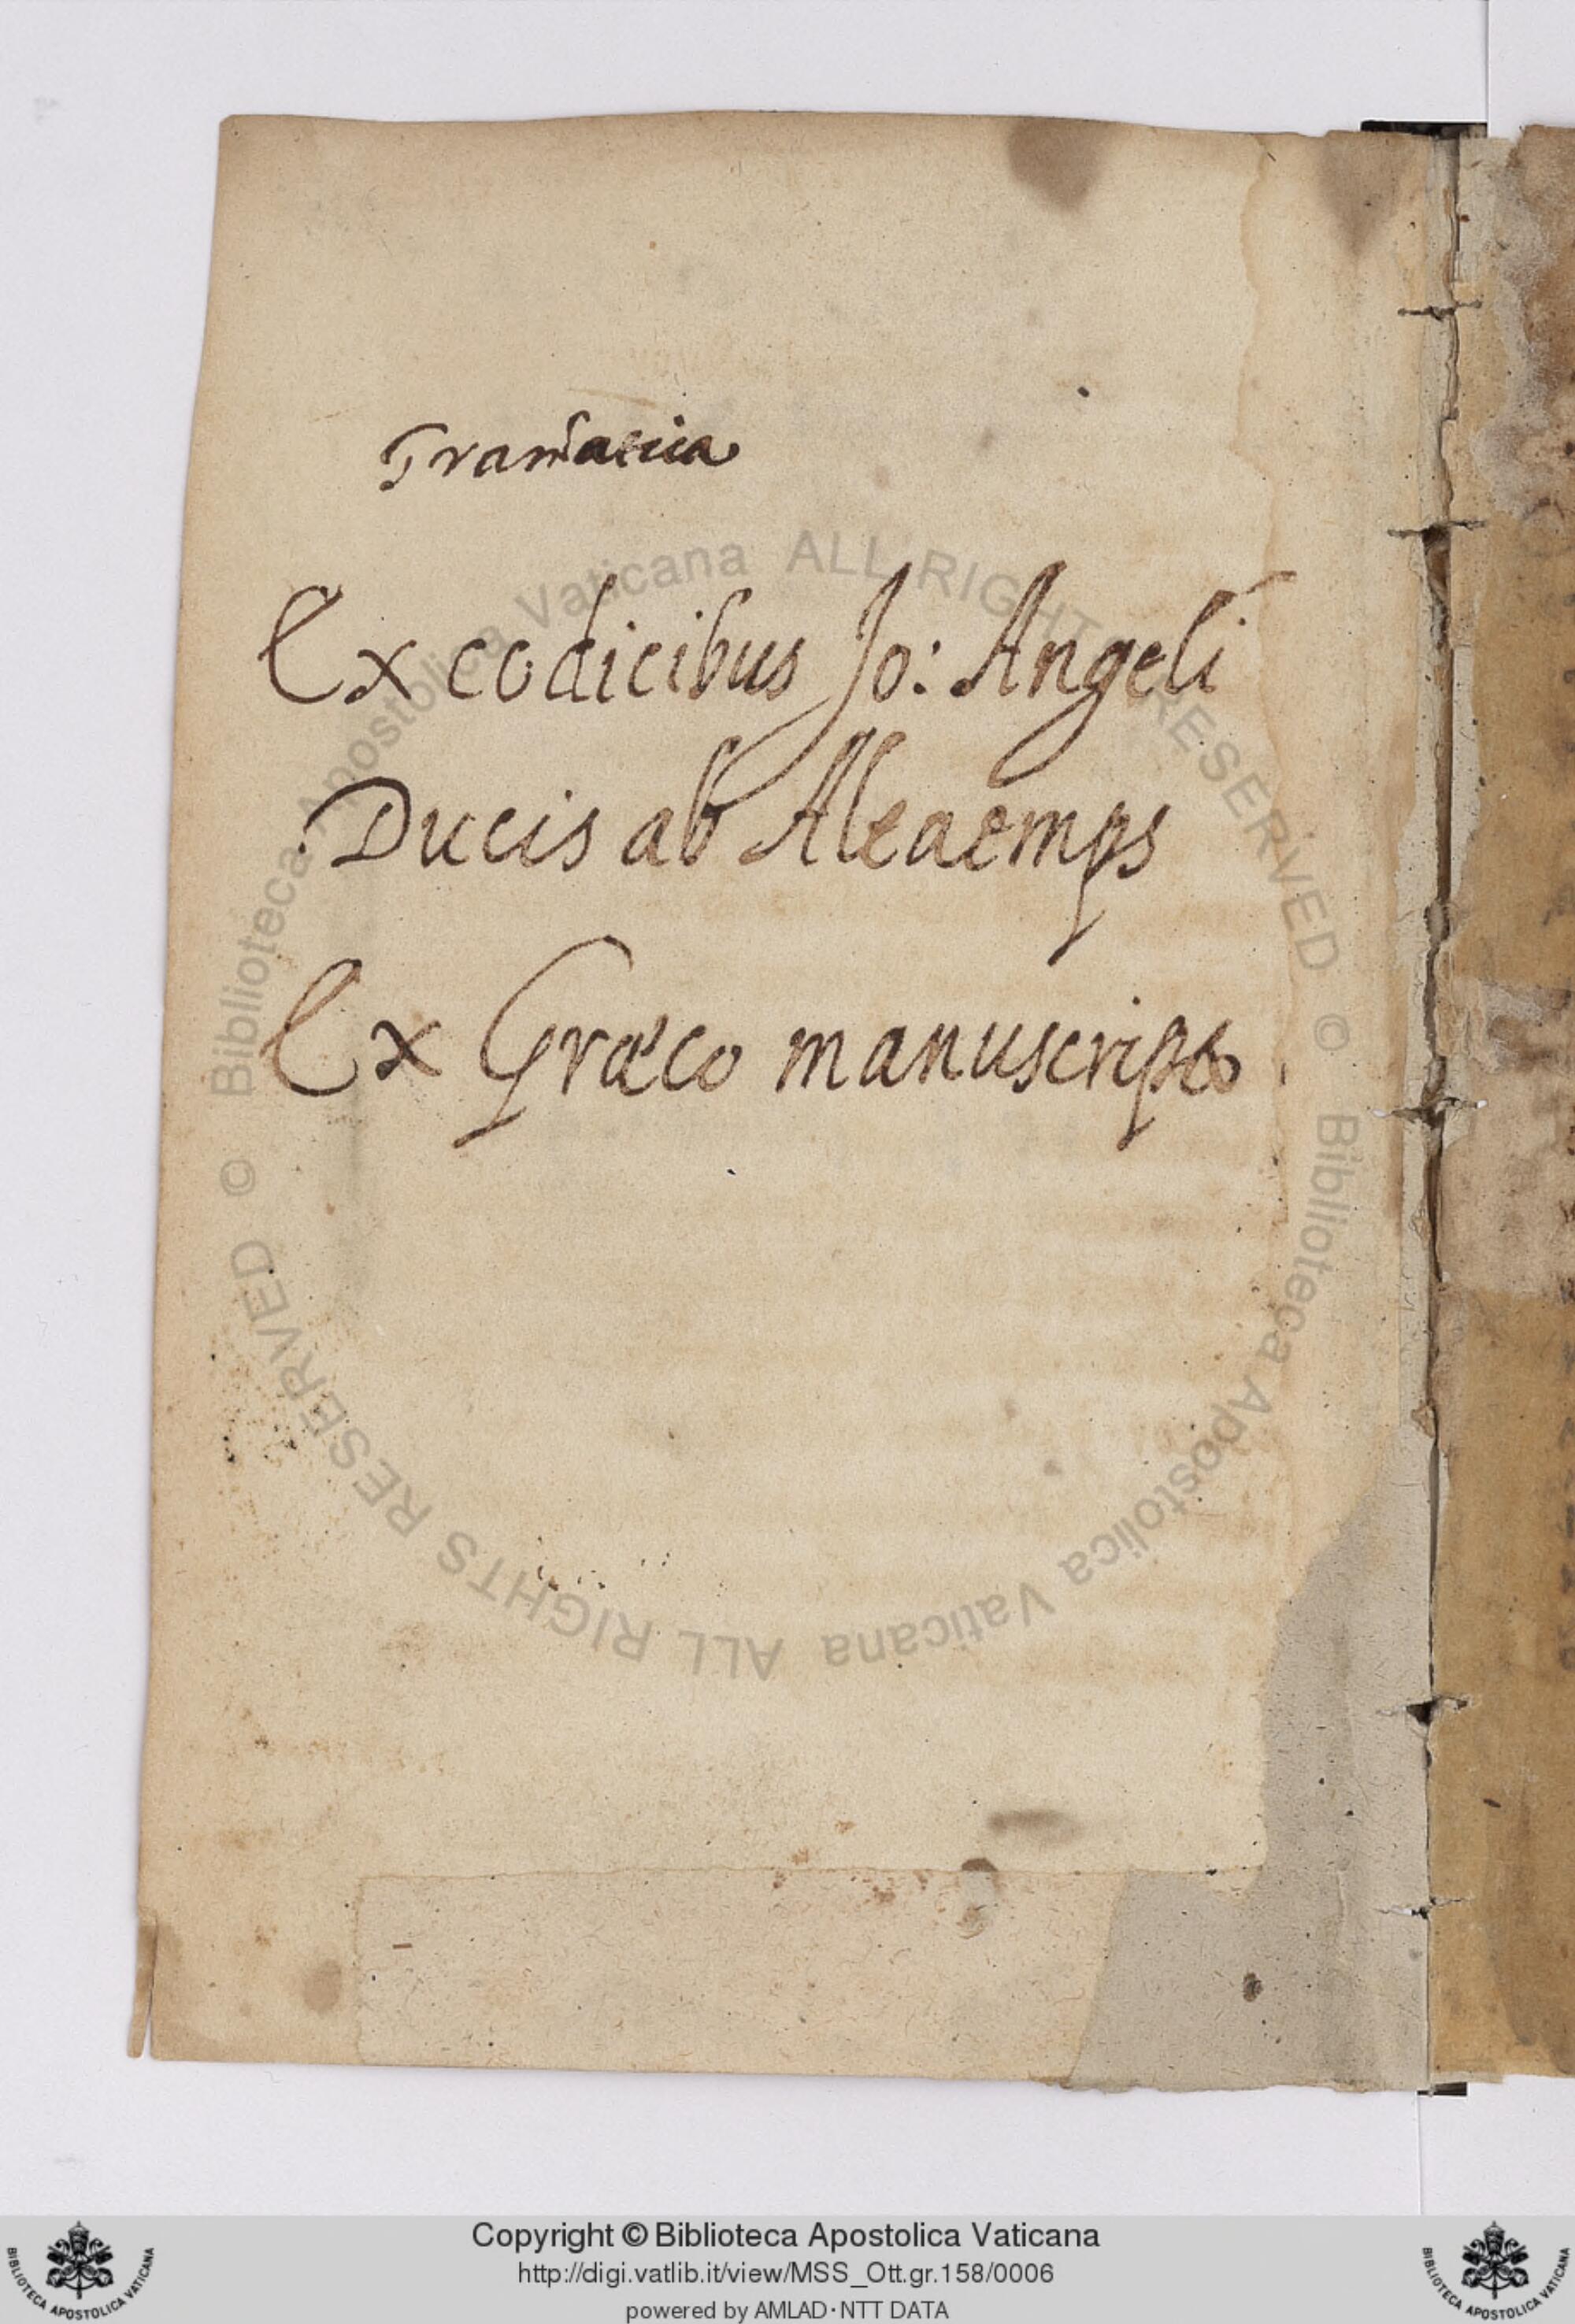 Gram̃atica
Ex codicibus Jo: Angeli
Ducis ab Altaemps
Ex Græco manuscripto
© Biblioteca Apostolica Vaticana ALL RIGHTS RESERVED
© Biblioteca Apostolica Vaticana ALL RIGHTS RESERVED
Copyright © Biblioteca Apostolica Vaticana
http://digi.vatlib.it/view/MSS_Ott.gr.158/0006
powered by AMLAD·NTT DATA
BIBLIOTECA APOSTOLICA VATICANA
BIBLIOTECA APOSTOLICA VATICANA